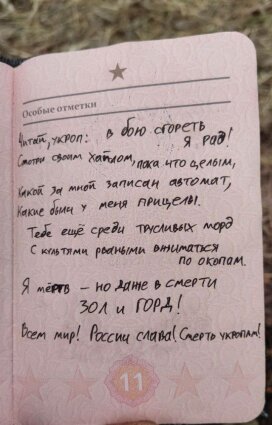 Особые отметки
Читай, укроп: в бою сгореть
Я РАД!
Смотри своим хайлом, пока что целым,
Какой за мной записан автомат,
Какие были у меня прицелы.
Тебе ещё среди трусливых морд
С культями рваными вжиматься
по окопам.
Я мёртв – но даже в смерти
ЗОЛ и ГОРД!
Всем мир! России слава! Смерть укропам!
11